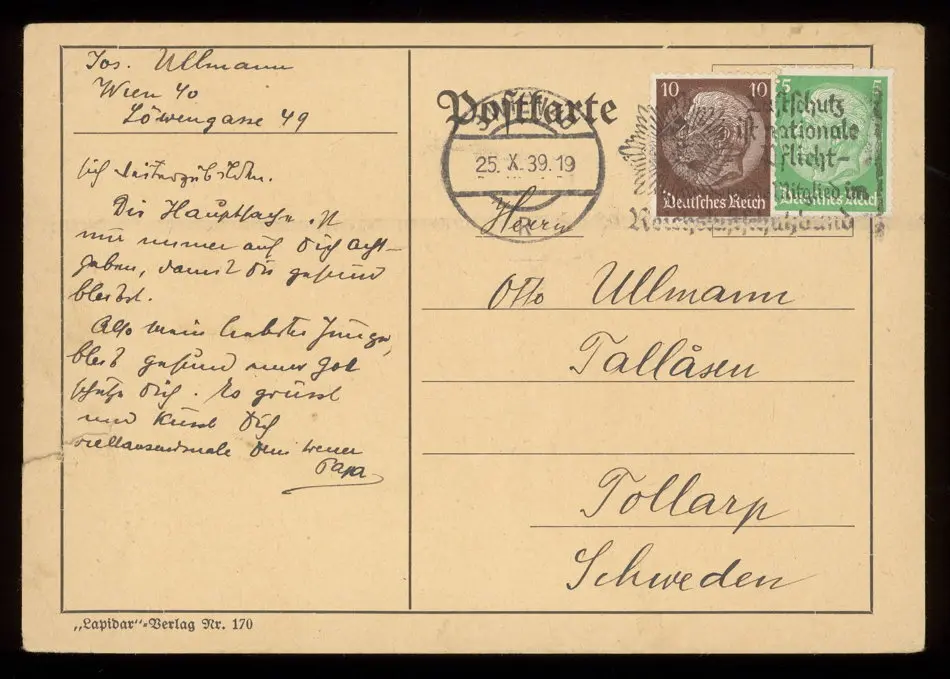 Jos. Ullmann
Wien 40
Löwengasse 49
sich
Die Hauptsache ist
nur immer auf Dich acht-
geben, damit Du gesund
bleibst.
Also mein liebster Junge,
bleib gesund und Gott
schütze Dich. Es grüsst
und küsst Dich
vieltausendmale Dein treuer
Papa
Postkarte
25. X. 39. 19
10 10
Deutsches Reich
5 5
Deutsches Reich
Luftschutz
ist nationale
Pflicht-
Mitglied im
Reichsluftschutzbund
Herrn
Otto Ullmann
Tallåsen
Tollarp
Schweden
„Lapidar"-Verlag Nr. 170